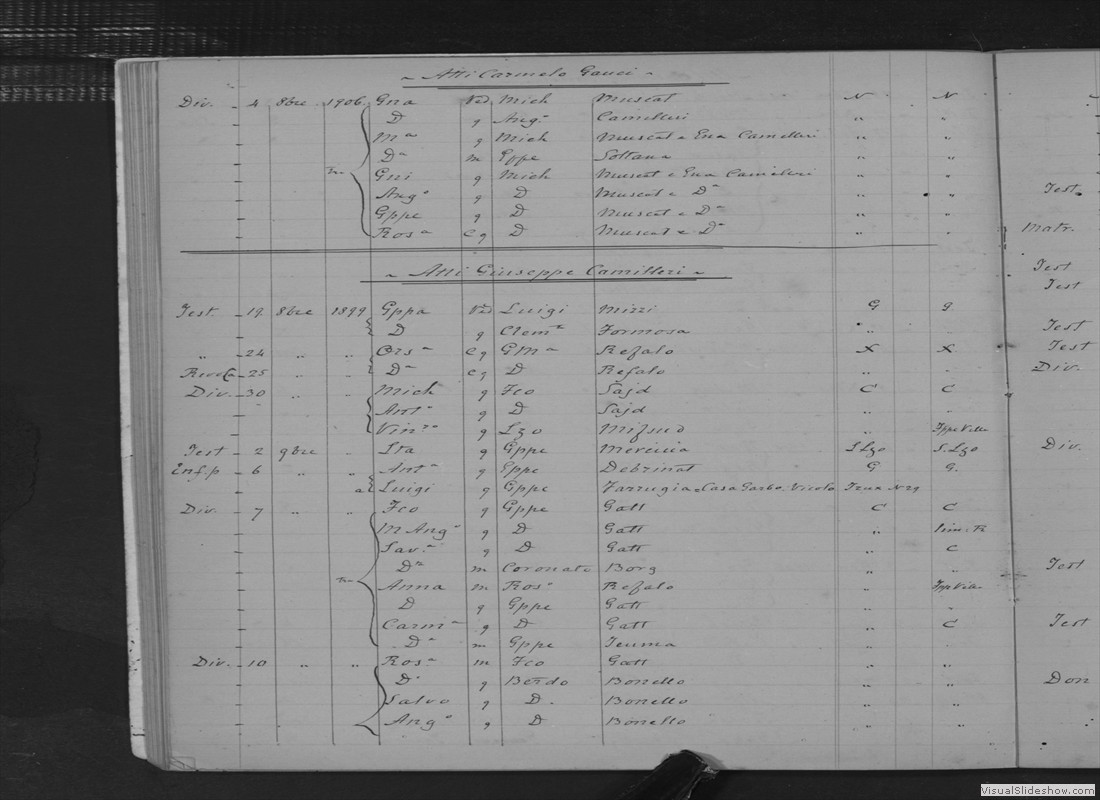 ~ Atti Carmelo Gauci ~
Div. 4 8bre 1906 Gna Ved Mich Muscat N N
D g Ango Camilleri " "
Ma g Mich Muscat e Eva Camilleri " "
Da m Gppe Soltana " "
Gni g Mich Muscat e Eva Camilleri " "
Ango g D Muscat e Da " " Test
Gppe g D Muscat e Da " "
Rosa C g D Muscat e Da " " Matr.
Test
~ Atti Giuseppe Camilleri ~
Test
Test. 19 8bre 1899 Gppa Vd Luigi Mizzi G g.
D g Clemte Formosa " Test
" 24 " " Orsa C g GMa Refalo X X Test
25 " " Da C g D Refalo " " Div.
Div. 30 " " Mich g Fco Sajd C C
Anto g D Sajd " "
Vinzo g Lzo Mifsud "
Test 2 9bre " Ita g Gppe Mercieca S Lzo S. Lzo Div.
Enf.p 6 " " Anto g Gppe Debrinat G G.
a Luigi g Gppe Farrugia Casa Garbo. Vicolo N 29
Div. 7 " " Fco g Gppe Gatt C C
M Anga g D Gatt "
Sava g D Gatt " C
Da m Coronato Borg " " Test
Anna m Roso Refalo "
D g Gppe Gatt " "
Carma g D Gatt " C Test
Da m Gppe Teuma " "
Div. 10 " " Rosa m Fco Gatt " "
Da g Berdo Bonello " " Don
Salvo g D. Bonello " "
Ango g D Bonello " "
VisualSlideshow.com